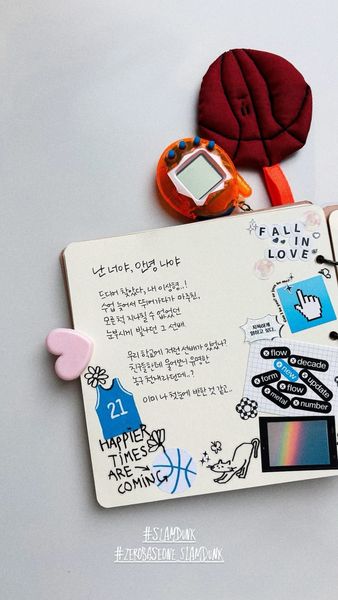 FALL
IN
LOVE
난 너야, 안녕 나야
드디어 찾았다, 내 이상형..!
수업 늦어서 뛰어가다가 마주친,
모른 척 지나칠 수 없었던
눈부시게 빛나던 그 선배.
우리 학교에 저런 선배가 있었나?
친구들한테 물어보니 유명한
농구 천재라던데..?
이미 나 첫눈에 반한 것 같고..
flow
decade
new
form
update
flow
metal
number
21
HAPPIER
TIMES
ARE →
COMING
#SLAMDUNK
#ZEROBASEONE_SLAMDUNK